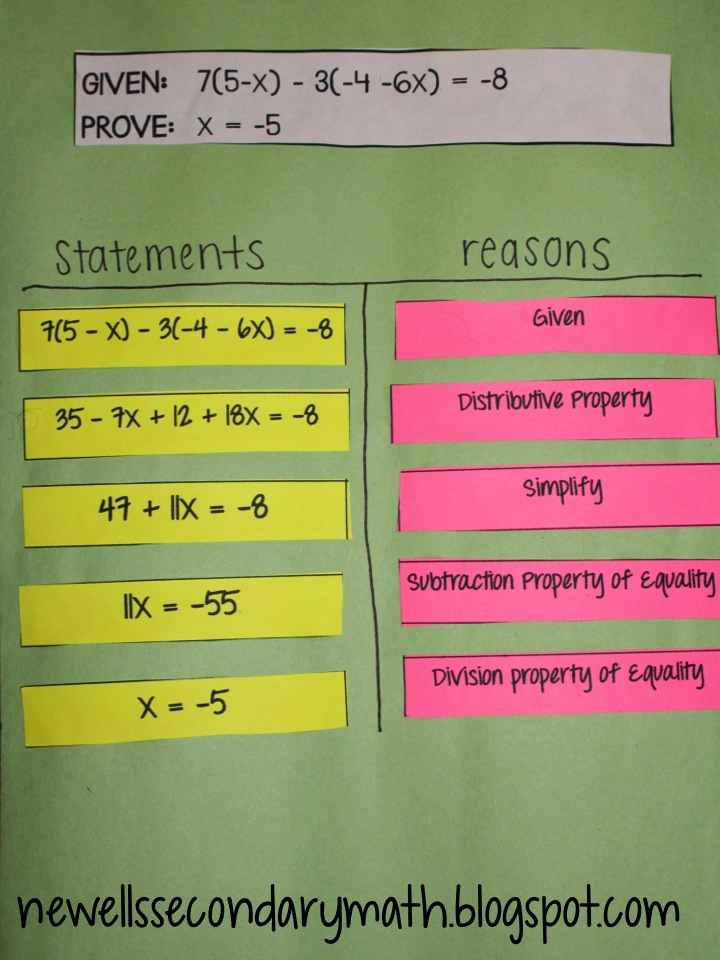 GIVEN: 7(5-x) - 3(-4 -6x) = -8
PROVE: x = -5
statements
reasons
7(5 - x) - 3(-4 - 6x) = -8
Given
35 - 7x + 12 + 18x = -8
Distributive Property
47 + 11x = -8
Simplify
11x = -55
Subtraction Property of Equality
x = -5
Division property of Equality
newellssecondarymath.blogspot.com